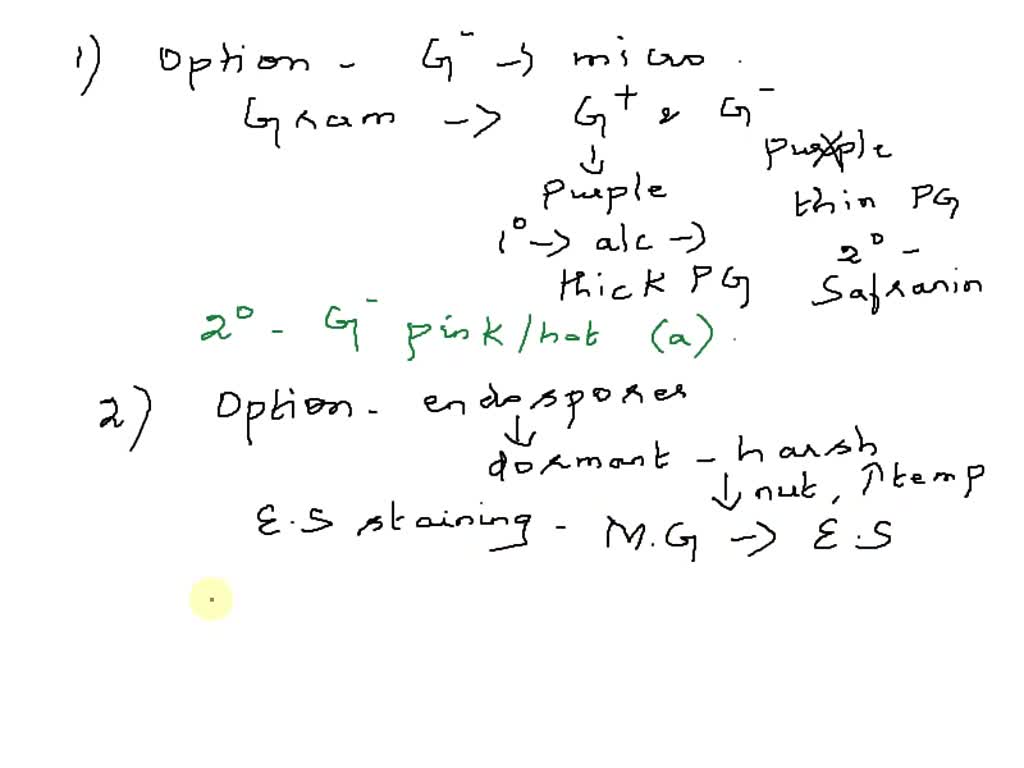 1) Option - G⁻ → micro.
Gram → G⁺ & G⁻
↓ purple
purple thin PG
1° → alc → 2° -
thick PG Safranin
2° - G⁻ pink/hot (a).
2) Option - endospores
↓
dormant - harsh
↓ nut, ↑ temp
E.S staining - M.G → E.S